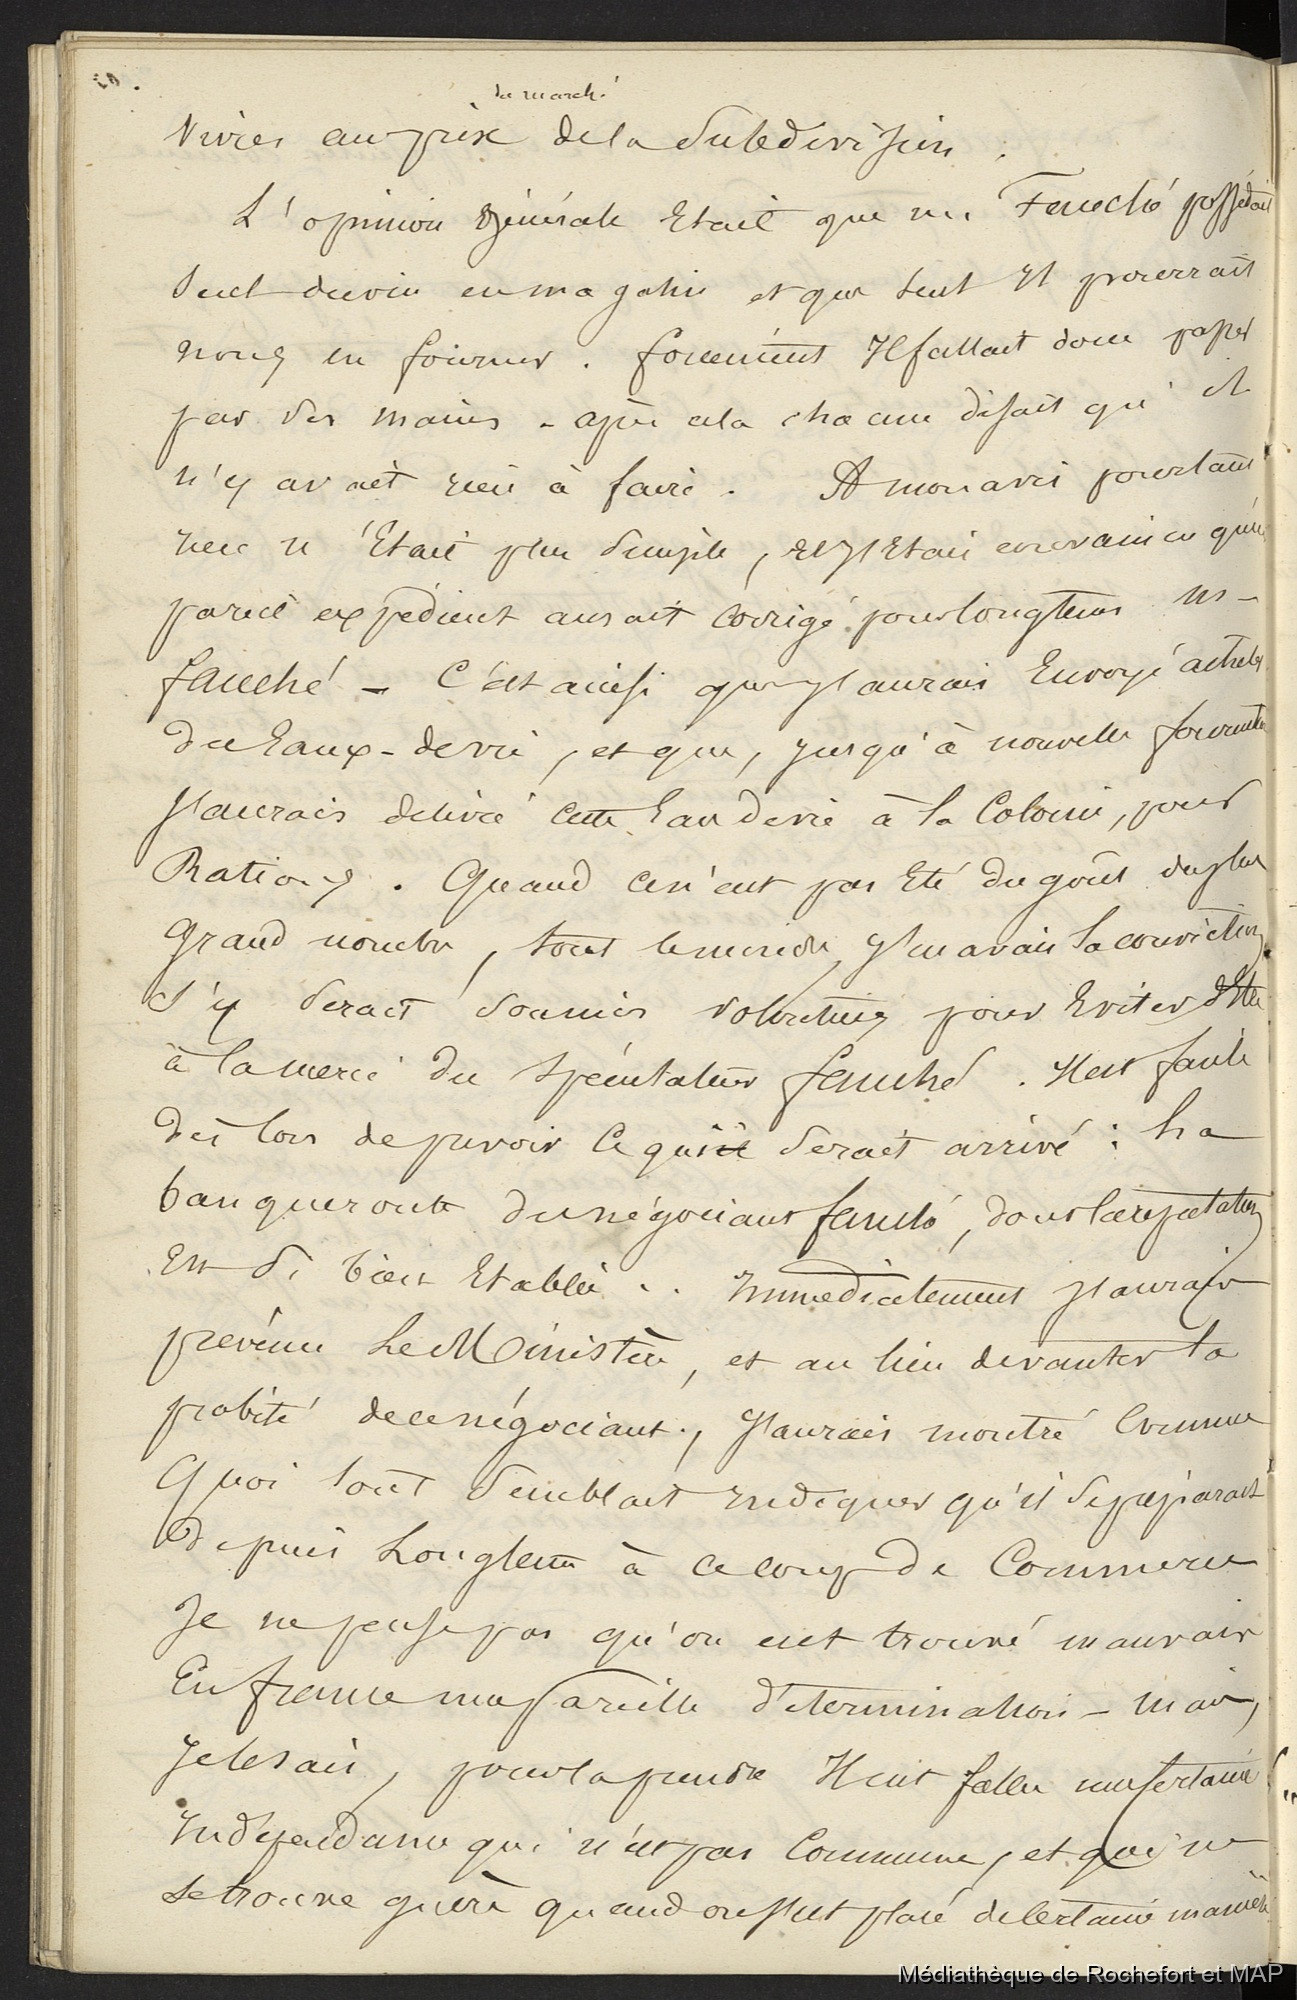 du marché
Vivres au prix de la Subdivision.
L'opinion générale Etait que Mr Fauché possédait
seul du vin en magasin et que seul Il pourrait
nous en fournir. forcément Il fallait donc passer
par ses mains - après cela chacun disait qu'il
n'y avait rien à faire. A mon avis pourtant
rien n'Etait plus simple, et J'Etais convaincu qu'un
pareil expédient aurait corrigé pour longtems Mr
fauché - C'est ainsi que J'aurais Envoyé acheter
du Eaux-de vie, et que, Jusqu'à nouvelle fourniture
J'aurais délivré cette Eau de vie à la Colonie, pour
Rations. Quand ce n'eut pas Eté du goût du plus
Grand nombre, tout le monde, J'en avais la conviction,
s'y serait soumis volontiers pour Eviter d'Etre
à la merci du spéculateur fauché. Il est facile
dès lors de prévoir ce qui serait arrivé : La
banqueroute du négociant fauché, dont la réputation
Est si bien Etablie.. Immédiatement J'aurais
prévenu Le Ministère, et au lieu de vanter la
probité de ce négociant, J'aurais montré Comme
Quoi tout semblait Indiquer qu'il se préparait
depuis Longtems à ce coup de Commerce
Je ne pense pas qu'on eut trouvé mauvais
En france ma pareille détermination - mais,
Je le sais, pour la prendre Il eut fallu une certaine
Indépendance qui n'est pas Commune, et qui ne
se trouve guère quand on s'est placé de certaine manière
Médiathèque de Rochefort et MAP